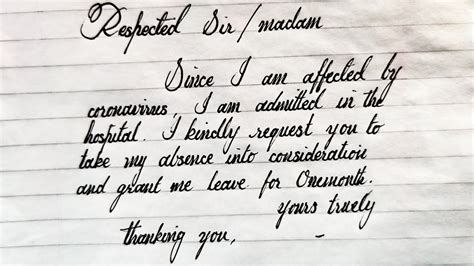 Respected Sir / madam
Since I am affected by
coronavirus, I am admitted in the
hospital. I kindly request you to
take my absence into consideration
and grant me leave for Onemonth.
yours truely
thanking you, -